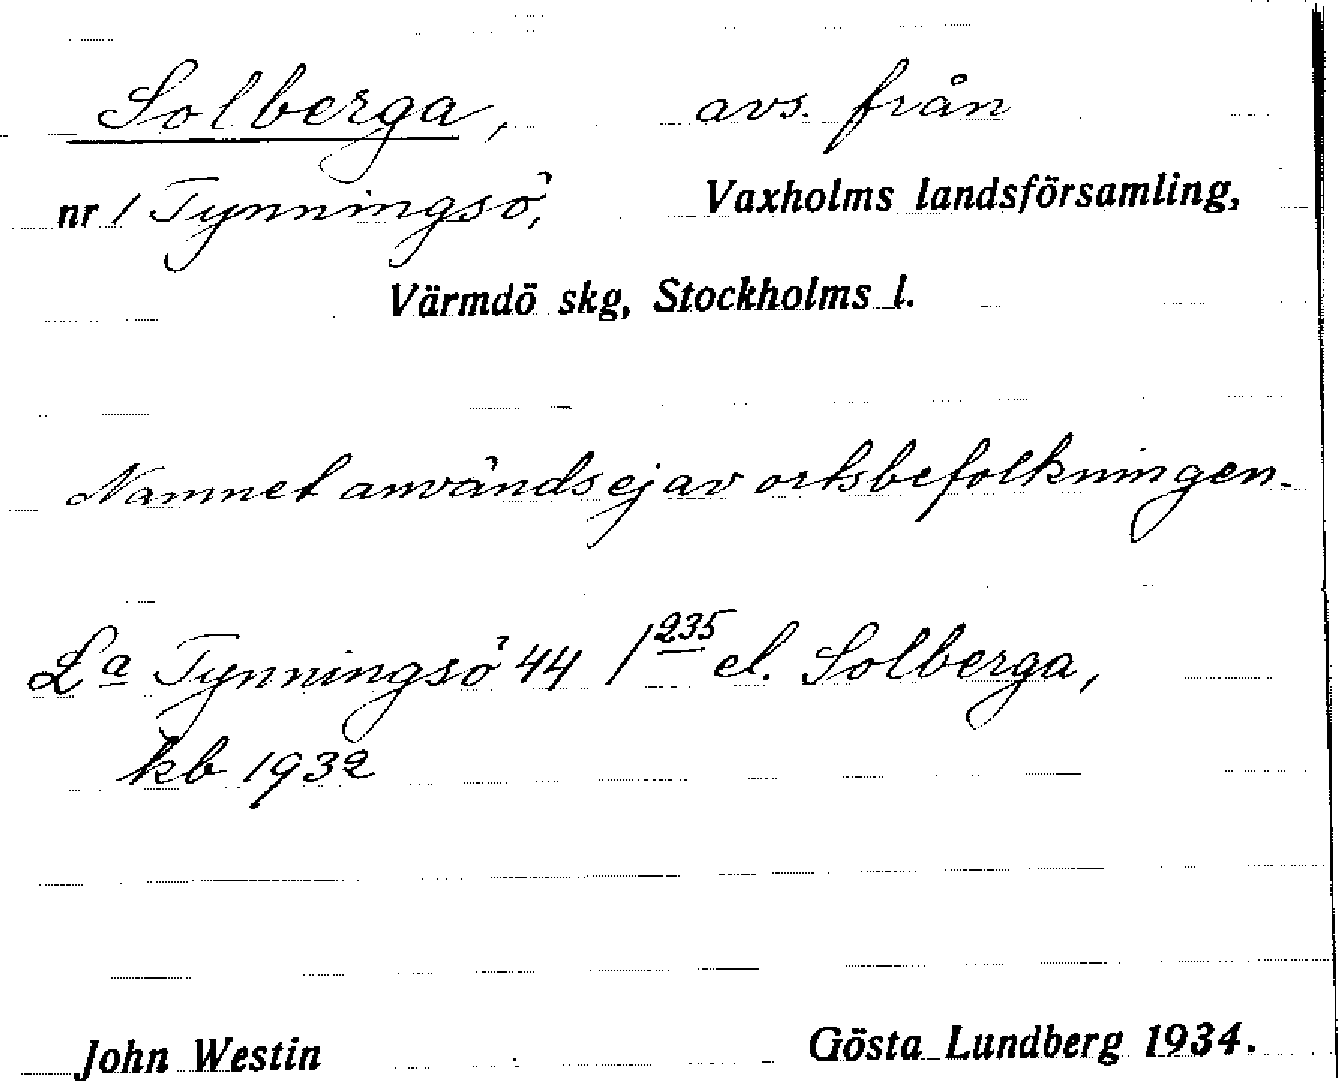 Solberga, avs. från
nr 1 Tynningsö, Vaxholms landsförsamling,
Värmdö skg, Stockholms l.
Namnet användes ej av ortsbefolkningen.
La Tynningsö 44 1 235 el. Solberga,
kb 1932
John Westin Gösta Lundberg 1934.